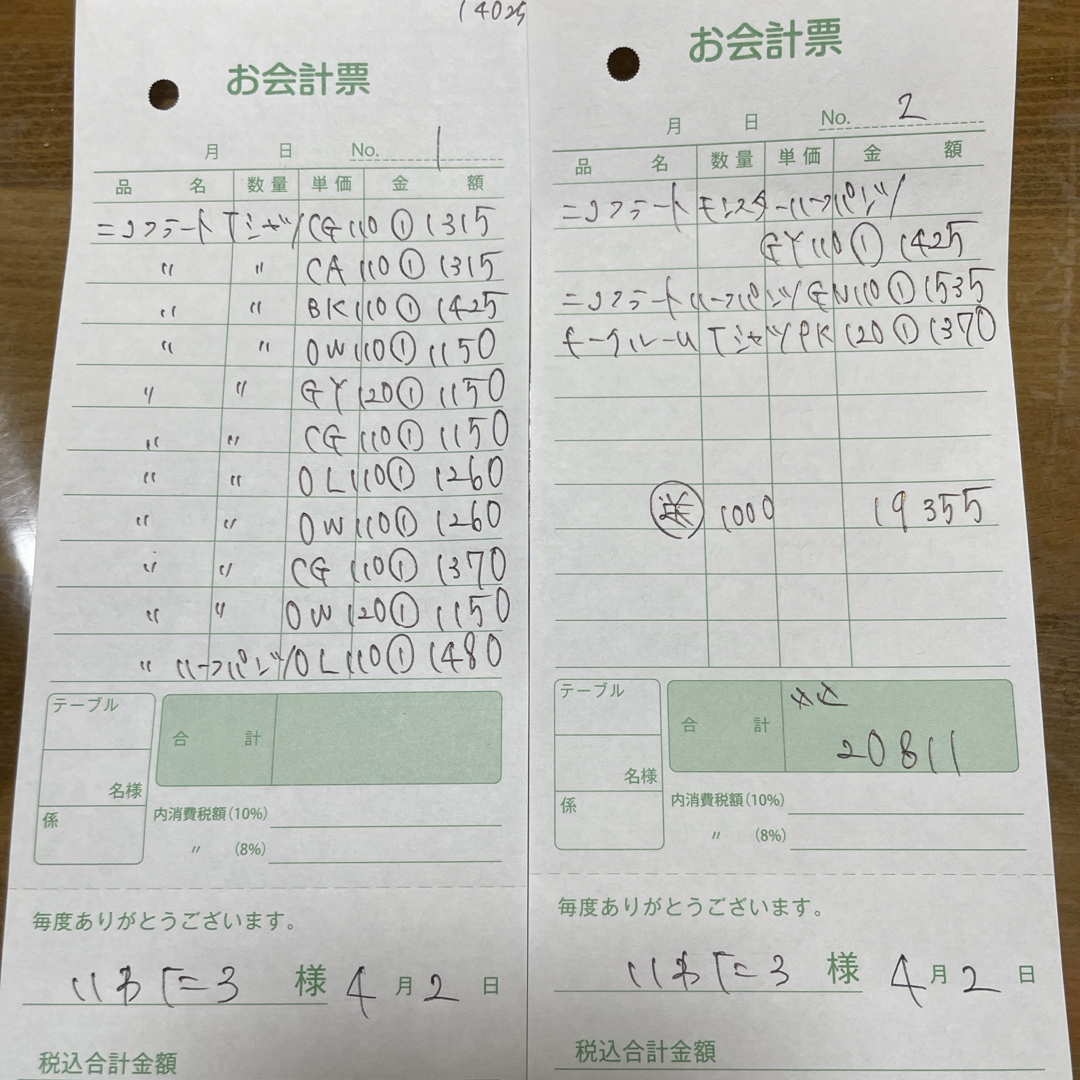 14025
お会計票
月 日 No. 1
品 名 数量 単価 金 額
ニコフラート Tシャツ CG 110 ① 1315
〃 〃 CA 110 ① 1315
〃 〃 BK 110 ① 1425
〃 〃 OW 110 ① 1150
〃 〃 GY 120 ① 1150
〃 〃 CG 110 ① 1150
〃 〃 OL 110 ① 1260
〃 〃 OW 110 ① 1260
〃 〃 CG 110 ① 1370
〃 〃 OW 120 ① 1150
〃 ハーフパンツ OL 110 ① 1480
テーブル
名様
係
合 計
内消費税額(10%)
〃 (8%)
毎度ありがとうございます。
様 4月2日
税込合計金額
お会計票
月 日 No. 2
品 名 数量 単価 金 額
ニコフラート モンスターハーフパンツ
GY 110 ① 1425
ニコフラート ハーフパンツ GN 110 ① 1535
Tシャツ PK 120 ① 1370
送 1000 19355
テーブル
名様
係
合 計 20811
内消費税額(10%)
〃 (8%)
毎度ありがとうございます。
様 4月2日
税込合計金額